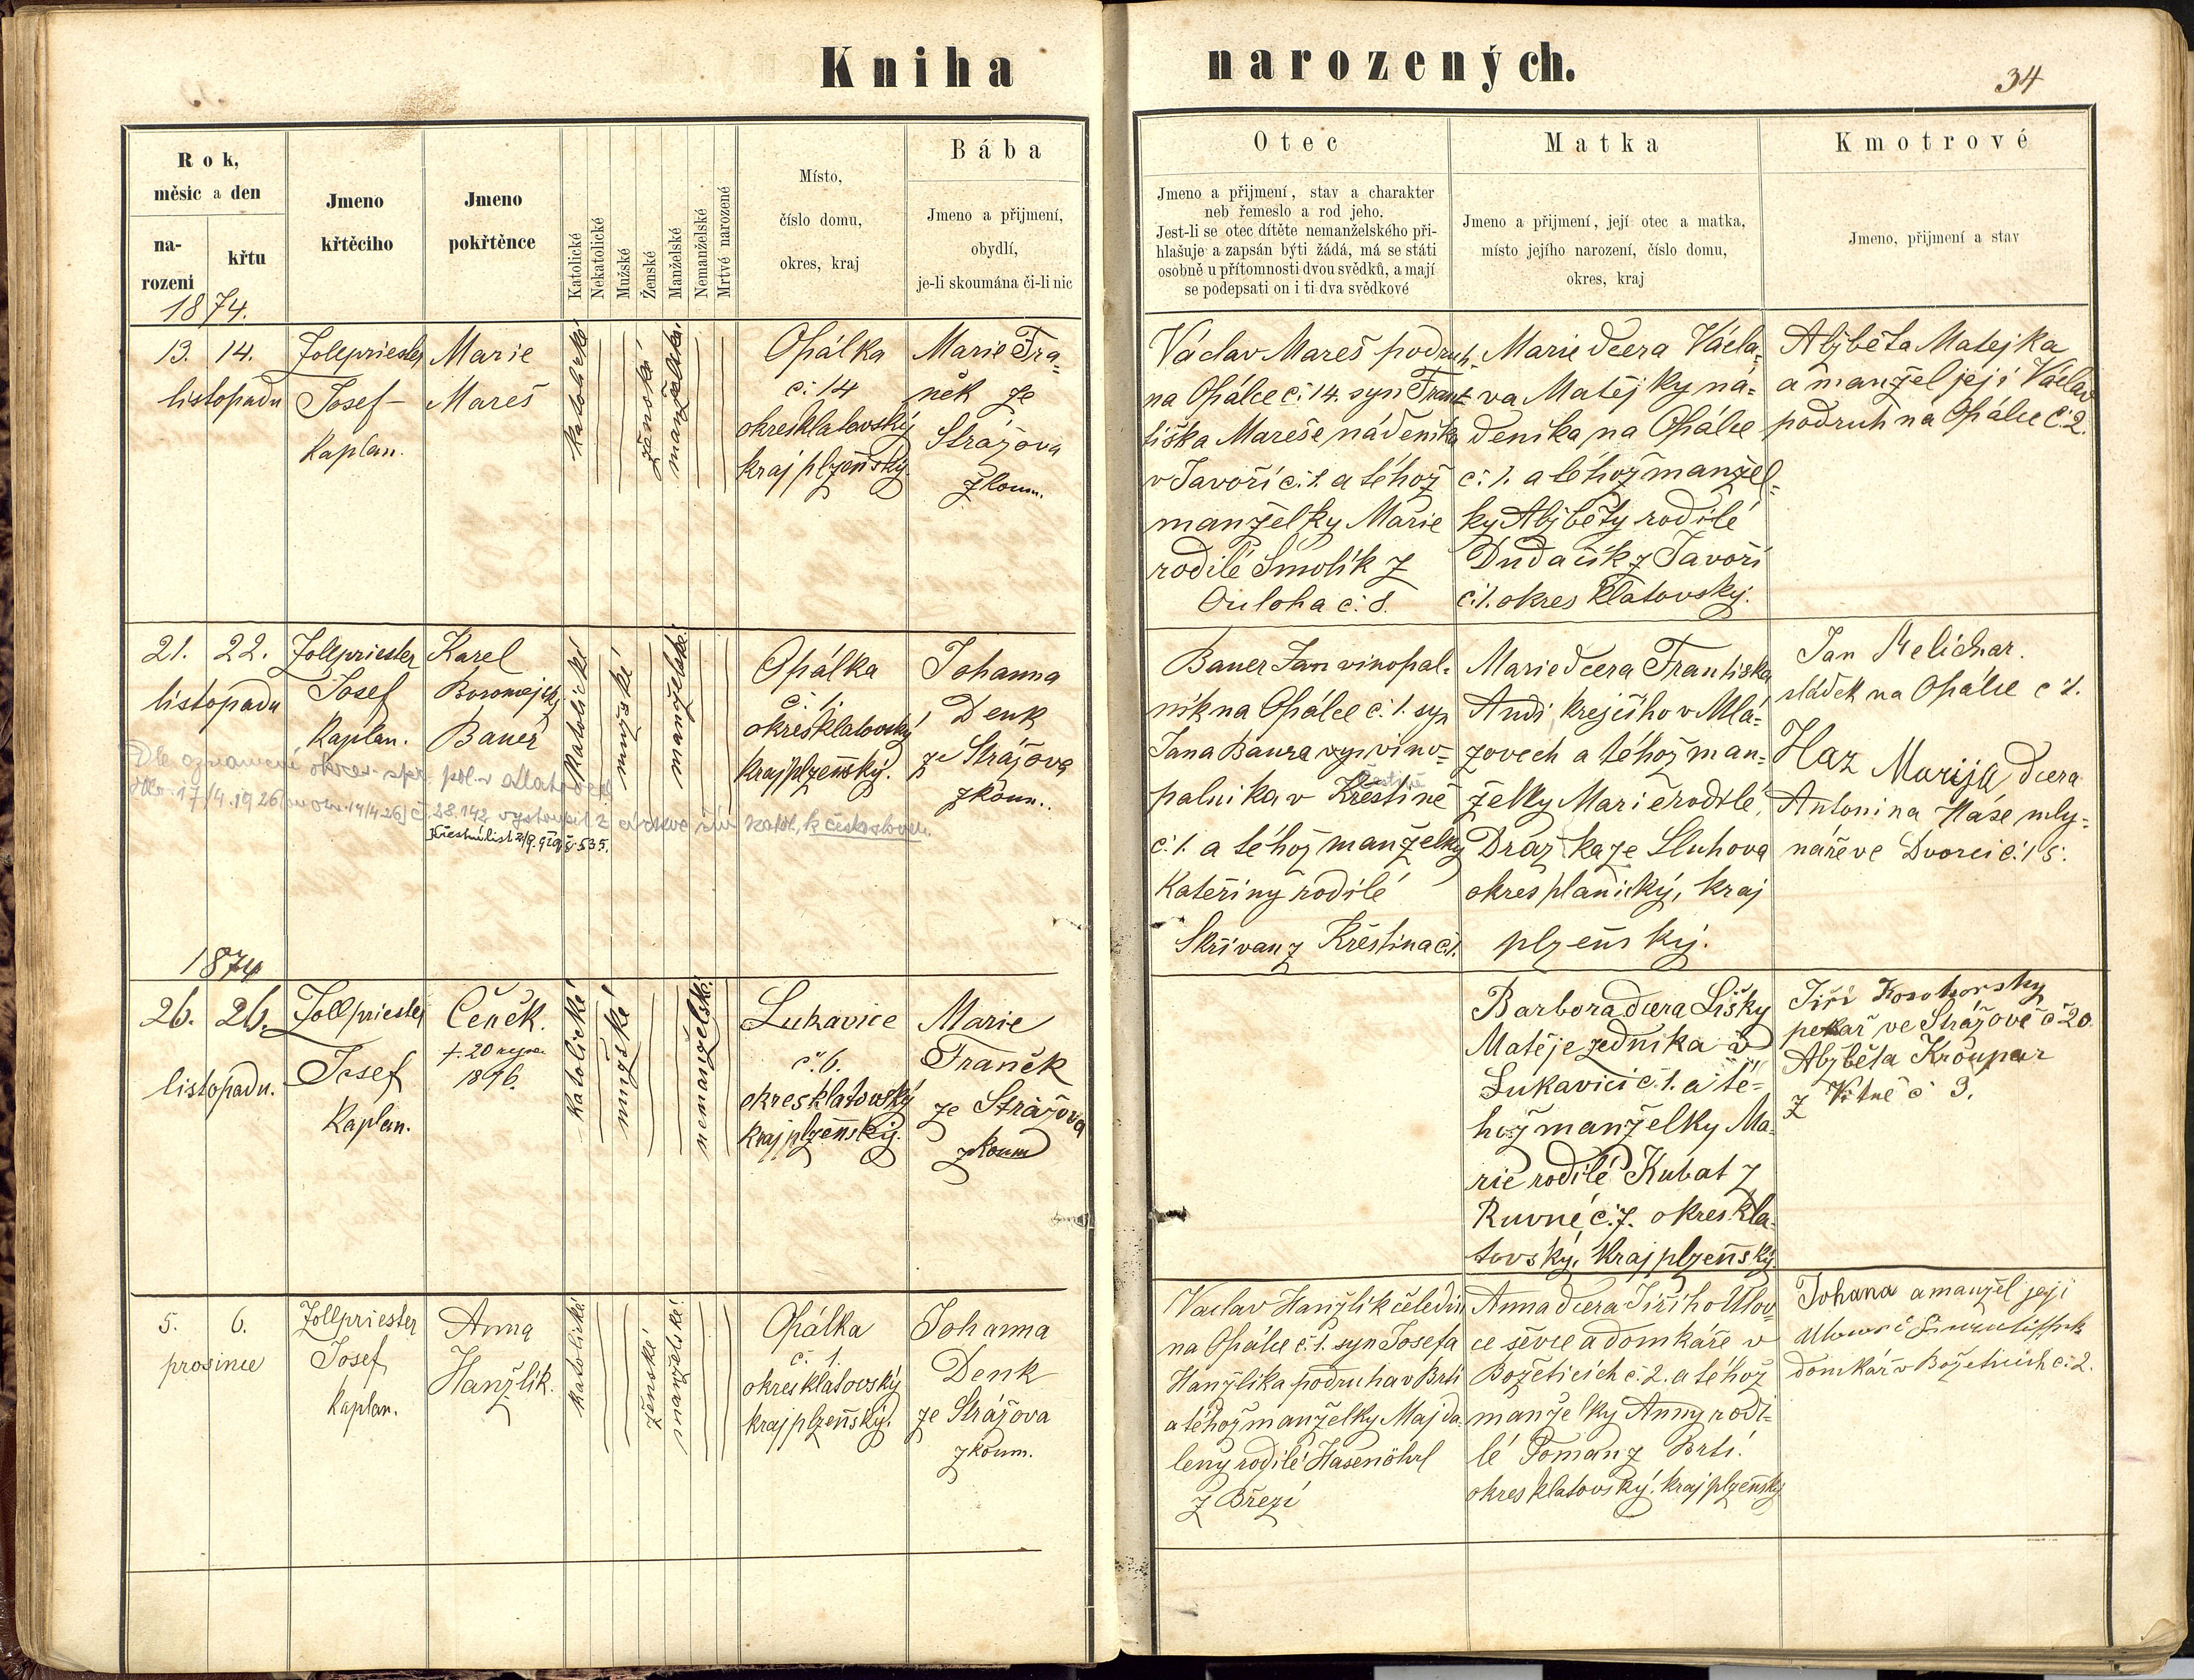 Kniha narozených.
34
Rok,
měsíc a den
na-
rozeni
křtu
Jmeno
křtěcího
Jmeno
pokřtěnce
Katolické
Nekatolické
Mužské
Ženské
Manželské
Nemanželské
Mrtvé narozené
Místo,
číslo domu,
okres, kraj
Bába
Jmeno a přijmení,
obydlí,
je-li skoumána či-li nic
Otec
Jmeno a přijmení, stav a charakter
neb řemeslo a rod jeho.
Jest-li se otec dítěte nemanželského při-
hlašuje a zapsán býti žádá, má se státi
osobně u přítomnosti dvou svědků, a mají
se podepsati on i ti dva svědkové
Matka
Jmeno a přijmení, její otec a matka,
místo jejího narození, číslo domu,
okres, kraj
Kmotrové
Jmeno, přijmení a stav
1874.
13. 14.
listopadu
Zollpriester
Josef
Kaplan.
Marie
Mareš
katolické
ženské
manželské
Opálka
č. 14
okres klatovský
kraj plzeňský
Marie Fra-
něk ze
Strážova
zkoum.
Václav Mareš podruh
na Opálce č. 14. syn Fran-
tiška Mareše nádeníka
v Javoří č. 1. a téhož
manželky Marie
rodilé Smolík z
Ouloha č. 8.
Marie dcera Václa-
va Matějky ná-
deníka na Opálce
č. 1. a téhož manžel-
ky Alžběty rodilé
Dudačík z Javoří
č. 1. okres Klatovský.
Alžběta Matejka
a manžel její Václav
podruh na Opálce č. 2.
21. 22.
listopadu
Zollpriester
Josef
Kaplan.
Karel
Boromejský
Bauer
katolické
mužské
manželské
Opálka
č. 1.
okres klatovský
kraj plzeňský.
Johanna
Denk
ze Strážova
zkoum.
Dle oznámení okres. spr. pol. v Klatovech
17/4. 1926 č. 28.142 vystoupil z církve řím. katol. k českosloven.
Křestní list č. 535.
Bauer Jan vinopal-
ník na Opálce č. 1. syn
Jana Baura vinо-
palníka v Křestině
č. 1. a téhož manželky
Kateřiny rodilé
Skřivan z Křestina č. 1.
Marie dcera Františka
Andi krejčího v Mlá-
zovech a téhož man-
želky Marie rodilé
Drázka ze Sluhova
okres planický, kraj
plzeňský.
Jan Melichar.
sládek na Opálce č 1.
Haz Marija dcera
Antonina Háze mly-
náře ve Dvorci č. 15.
1874
26. 26.
listopadu.
Zollpriester
Josef
Kaplan.
Čeněk.
1896.
katolické
mužské
nemanželské
Lukavice
č. 6.
okres klatovský
kraj plzeňský.
Marie
Franěk
ze Strážova
zkoum
Barbora dcera Lišky
Matěje zedníka v
Lukavici č. 1. a té-
hož manželky Ma-
rie rodilé Kubat z
Ruvné č. 7. okres kla-
tovský, Kraj plzeňský
Jiří Kosohorsky
pekař ve Strážově č 20.
Alžběta Kroupar
z Vitně č 3.
5. 6.
prosince
Zollpriester
Josef
Kaplan.
Anna
Hanžlik.
katolické
ženské
manželské
Opálka
č. 1.
okres klatovský
kraj plzeňský.
Johanna
Denk
ze Strážova
zkoum.
Vaclav Hanžlik čeledín
na Opálce č. 1. syn Josefa
Hanžlika podruha v Brti
a téhož manželky Majda-
leny rodilé Hasenöhrl
z Březí
Anna dcera Jiřího Ulov-
ce ševce a domkáře v
Božeticích č. 2. a téhož
manželky Anny rodi-
lé Toman z Brtí.
okres klatovský. kraj plzeňský
Johana a manžel její
domkář v Božeticích č. 2.